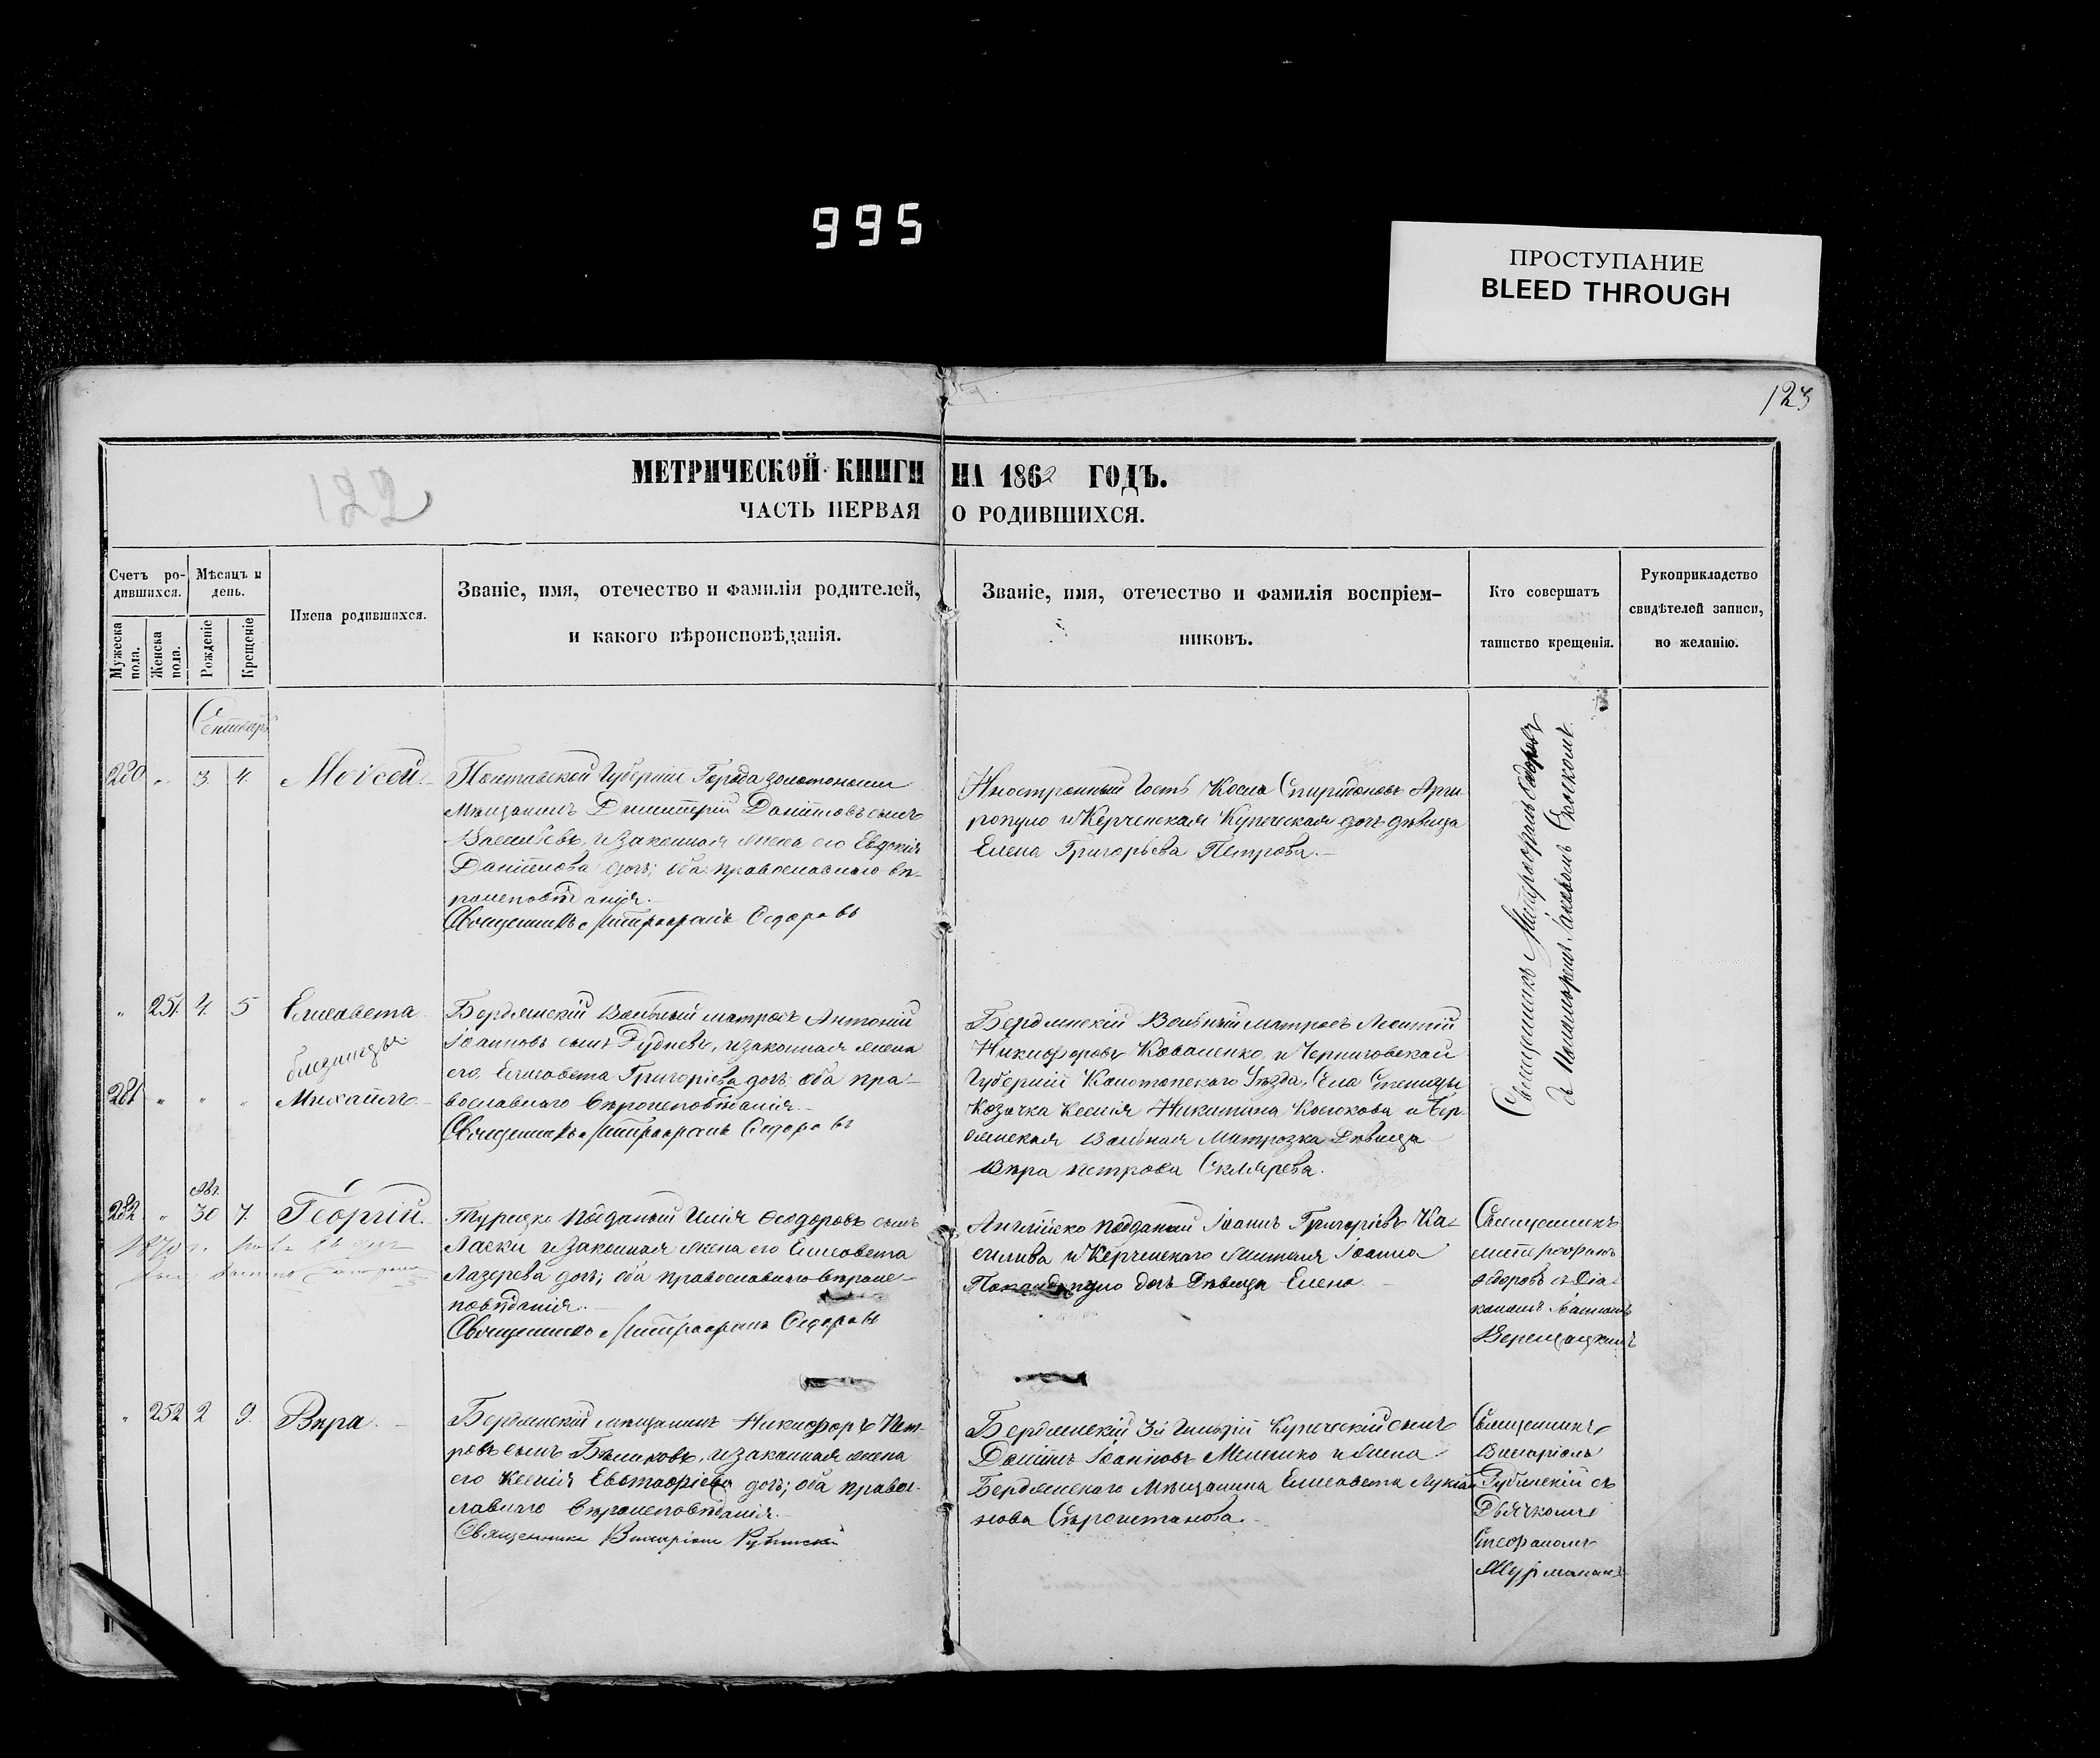 995
ПРОСТУПАНИЕ
BLEED THROUGH
123
122
МЕТРИЧЕСКОЙ КНИГИ НА 1862 ГОДЪ.
ЧАСТЬ ПЕРВАЯ О РОДИВШИХСЯ.
Счетъ ро-
дившихся.
Мужеска пола.
Женска пола.
Мѣсяцъ и
день.
Рожденіе
Крещеніе
Имена родившихся.
Званіе, имя, отечество и фамилія родителей,
и какого вѣроисповѣданія.
Званіе, имя, отечество и фамилія воспріем-
никовъ.
Кто совершатъ
таинство крещенія.
Рукоприкладство
свидѣтелей записи,
по желанію.
280 " 3 4. Моѵсей.
Полтавской Губерніи Города Золотоноши
Мѣщанинъ Димитрій Даніиловъ сынъ
Васильевъ, и законная жена его Евдокія
Даніилова дочь; оба православнаго вѣ-
роисповѣданія.
Священникъ Митрофанъ Ѳедоровъ
Иностранный Гость Косма Спиридоновъ Арги-
ропуло и Керченская Купеческая дочь дѣвица
Елена Григорьева Петрова.
Священникъ Митрофанъ Ѳедоровъ
" 251. 4. 5 Елисавета
близнецы
281 " " " Михаилъ.
Бердянскій Вольный матросъ Антоній
Іоанновъ сынъ Рудневъ, и законная жена
его, Елисавета Григоріева дочь, оба пра-
вославнаго вѣроисповѣданія.
Священникъ Митрофанъ Ѳедоровъ
Бердянскій Вольный матросъ Леонтій
Никифоровъ Коваленко, и Черниговской
Губерніи Конотопскаго Уѣзда, Села
Козачка Ксенія Никитина и Бер-
дянская Вольная Матрозка Дѣвица
Вѣра Петрова Склярева.
Авг.
282 " 30 7. Георгій.
1870 г.
Турецко Подданый Илія Ѳеодоровъ сынъ
Ласки и законная жена его Елисавета
Лазерева дочь; оба православнаго вѣроис-
повѣданія.
Священникъ Митрофанъ Ѳедоровъ
Англійско подданый Іоаннъ Григоріевъ Ка-
силива и Керченскаго Іоанна
дочь Дѣвица Елена.
Священникъ
Митрофанъ
Ѳедоровъ съ Діа-
кономъ
" 252 2 9. Вѣра.
Бердянскій мѣщанинъ Никифоръ Пет-
ровъ сынъ Бѣликовъ, и законная жена
его Ксенія Евстафіева дочь; оба правос-
лавнаго вѣроисповѣданія.
Священникъ
Бердянскій 3й Гильдіи Купеческій сынъ
Іоанновъ и жена
Бердянскаго Мѣщанина Елисавета Лукіа-
нова
Священникъ
съ
Дьячкомъ
Стефаномъ